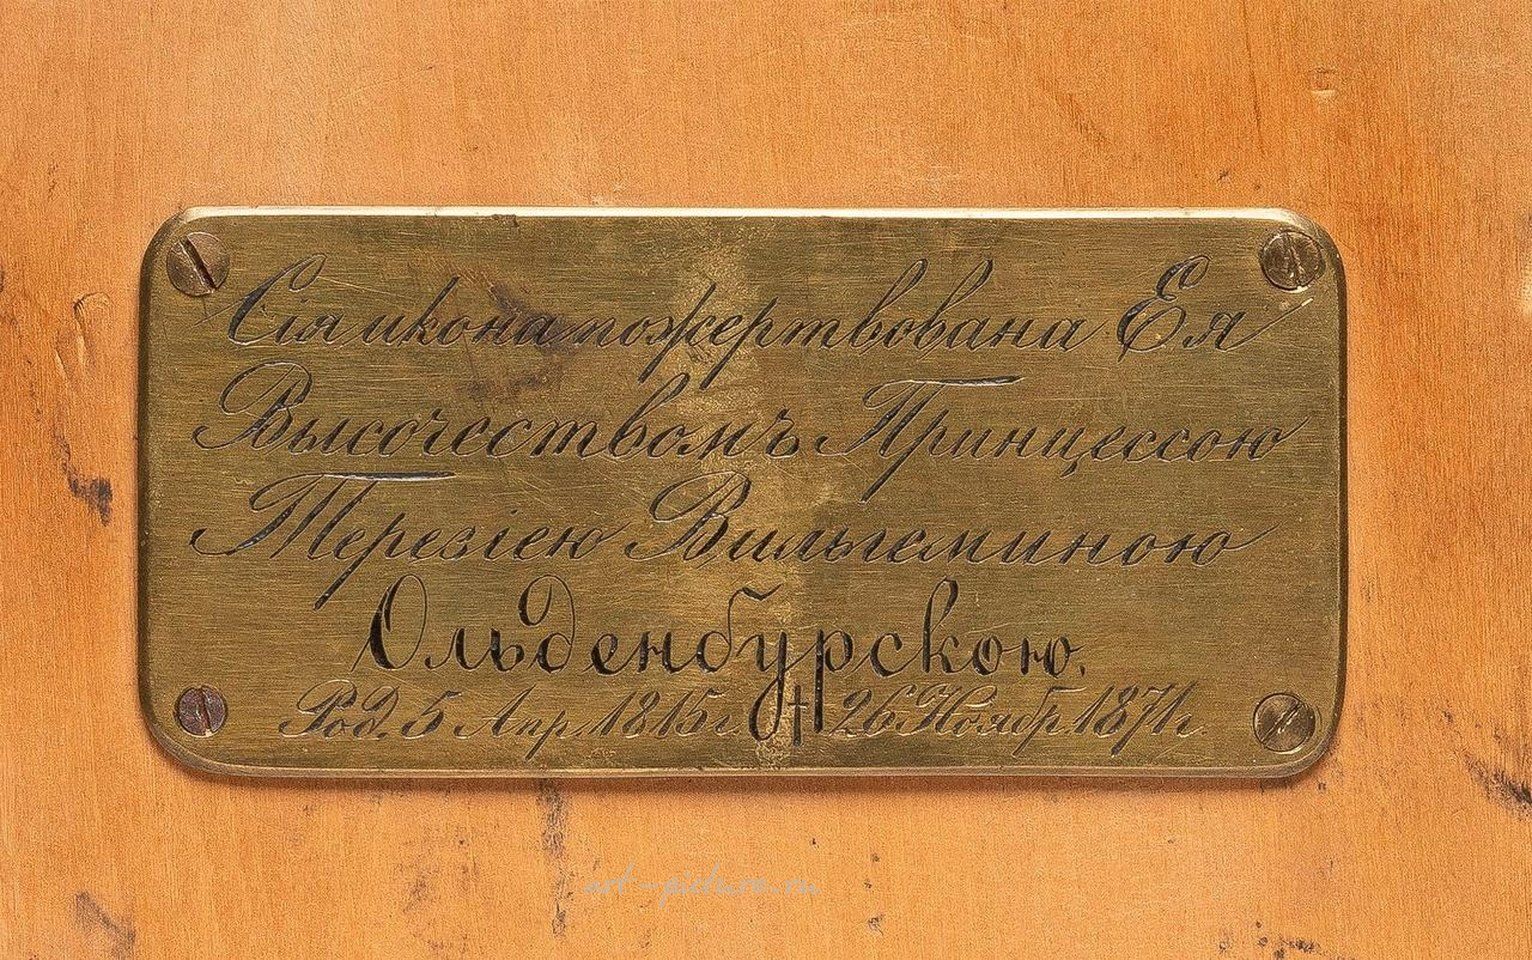 Сія икона пожертвована Ея
Высочествомъ Принцессою
Терезіею Вильгеминою
Ольденбурскою.
Род. 5 Апр. 1815 г. † 26 Ноябр. 1871 г.
art-picture.ru